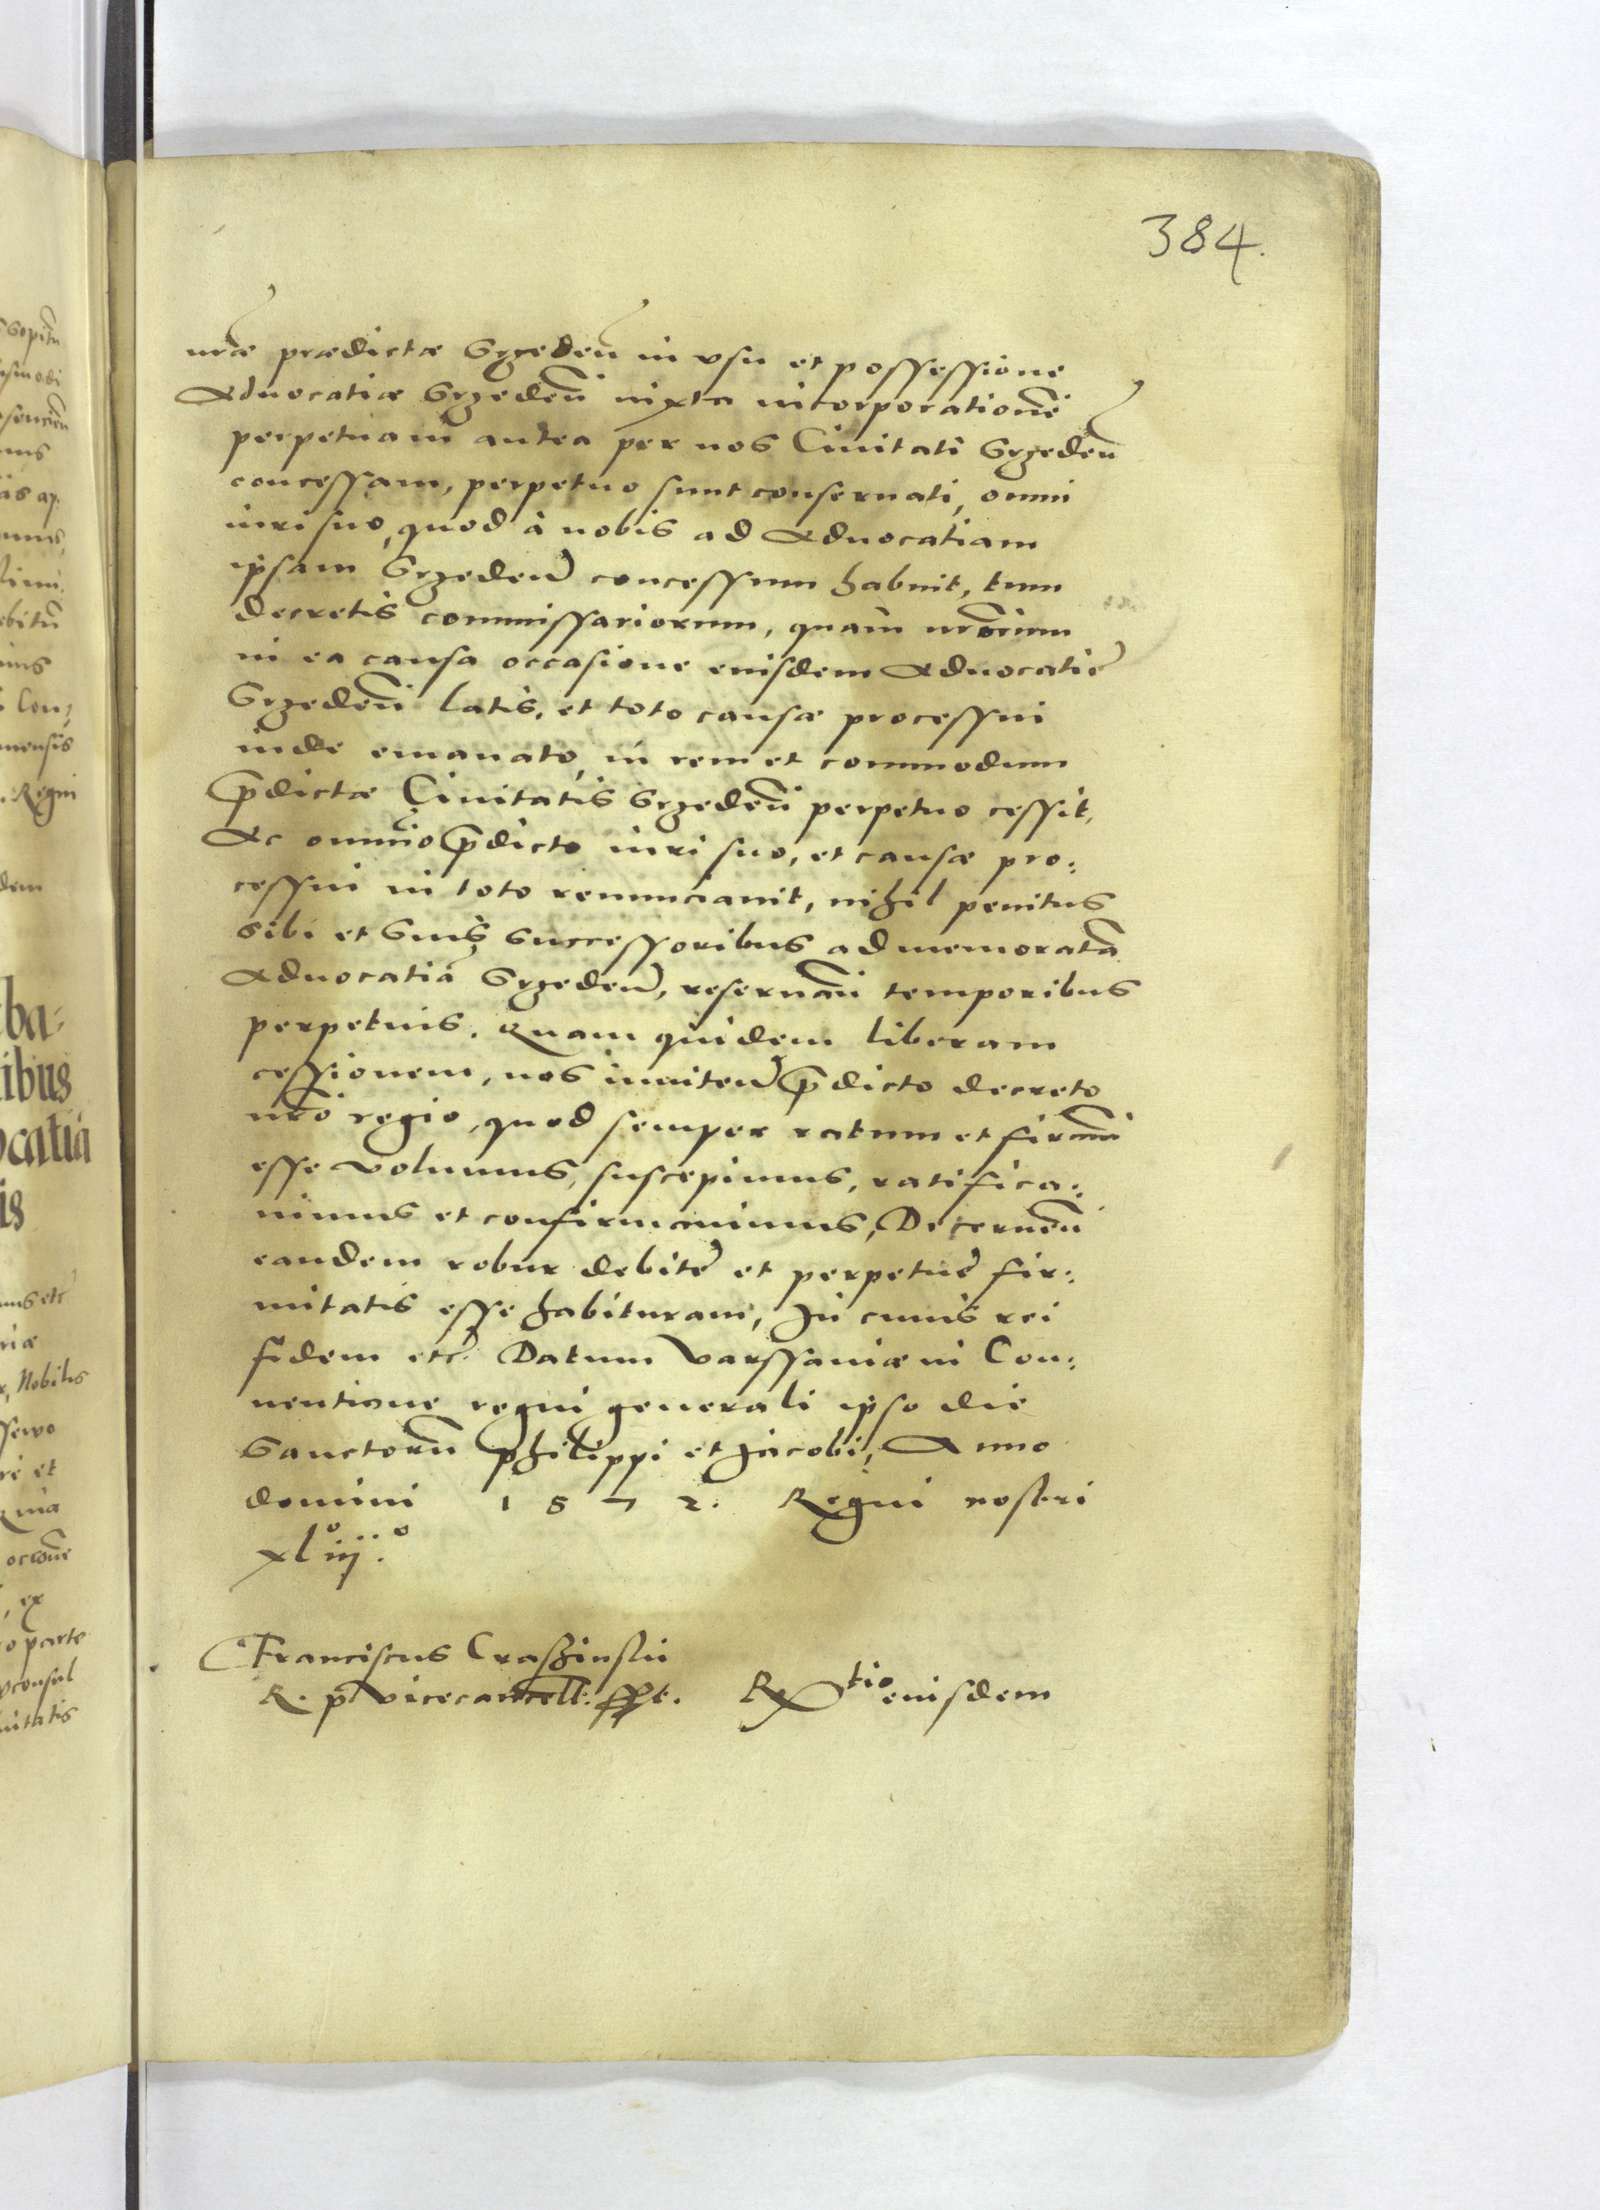 384.
nr̃æ prædictæ Srzedeñ in vsu et possessione
Aduocatiæ Srzedeñ iuxta incorporationẽ
perpetuam antea per nos Ciuitati Srzedeñ
concessam, perpetuo sunt conseruati, omni
iuri suo, quod à nobis ad Aduocatiam
ipsam Srzedeñ concessum habuit, tum
decretis commissariorum, quàm nr̃orum
in ea causa occasione eiusdem Aduocatiẽ
Srzedeñ latis, et toto causæ processui
inde emanato, in rem et commodum
p̃dictæ Ciuitatis Srzedeñ perpetuo cessit,
Ac omnino p̃dicto iuri suo, et causæ pro:
cessui in toto renunciauit, nihil penitus
sibi et suis successoribus ad memoratã
Aduocatiã Srzedeñ, reseruañ temporibus
perpetuis. Quam quidem liberam
cessionem, nos inniteñ p̃dicto decreto
nr̃o regio, quod semper ratum et firmũ
esse volumus, suscepimus, ratifica:
uimus et confirmauimus, Decerneñ
eandem robur debitẽ et perpetuẽ fir:
mitatis esse habituram, In cuius rei
fidem etc̃. Datum Varssauiæ in Con:
uentione regni generali ipso die
Sanctorũ Philippi et Jacobi, Anno
domini 1572. Regni nostri
xlº iijº.
Franciscus Craszinski
R. P. Vicecancell. sspt.
Rtio eiusdem
Regni
dem
ba:
ibus
ocatiã
is
Nobilis
et
ex
o parte